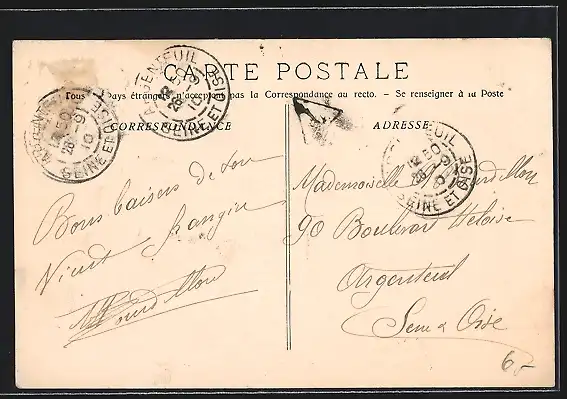 CARTE POSTALE
Tous les Pays étrangers n'acceptent pas la Correspondance au recto. - Se renseigner à la Poste
CORRESPONDANCE
ADRESSE
ARGENTEUIL
12 50
28 -9
10
SEINE ET OISE
ARGENTEUIL
12 50
28 -9
10
SEINE ET OISE
ARGENTEUIL
12 50
28 -9
10
SEINE ET OISE
Bons baisers de ton
Vieux frangin
Mademoiselle
90 Boulevart Héloise
Argenteuil
Seine & Oise
6,-